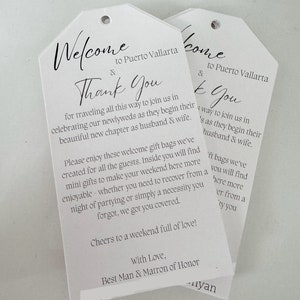 Welcome to Puerto Vallarta
&
Thank You
for traveling all this way to join us in
celebrating our newlyweds as they begin their
beautiful new chapter as husband & wife.
Please enjoy those welcome gift bags we've
created for all the guests. Inside you will find
mini gifts to make your weekend here more
enjoyable - whether you need to recover from a
night of partying or simply a necessity you
forgot, we got you covered.
Cheers to a weekend full of love!
With Love,
Best Man & Matron of Honor
to Puerto Vallarta
You
to join us in
as they begin their
husband & wife.
gift bags we've
Inside you will find
weekend here more
need to recover from a
a necessity you
covered.
of love!
of Honor